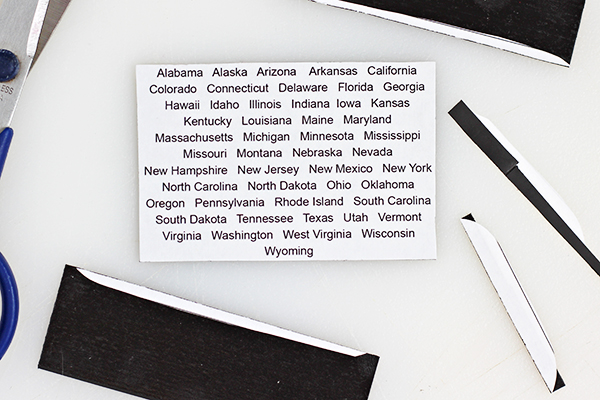 Alabama Alaska Arizona Arkansas California
Colorado Connecticut Delaware Florida Georgia
Hawaii Idaho Illinois Indiana Iowa Kansas
Kentucky Louisiana Maine Maryland
Massachusetts Michigan Minnesota Mississippi
Missouri Montana Nebraska Nevada
New Hampshire New Jersey New Mexico New York
North Carolina North Dakota Ohio Oklahoma
Oregon Pennsylvania Rhode Island South Carolina
South Dakota Tennessee Texas Utah Vermont
Virginia Washington West Virginia Wisconsin
Wyoming